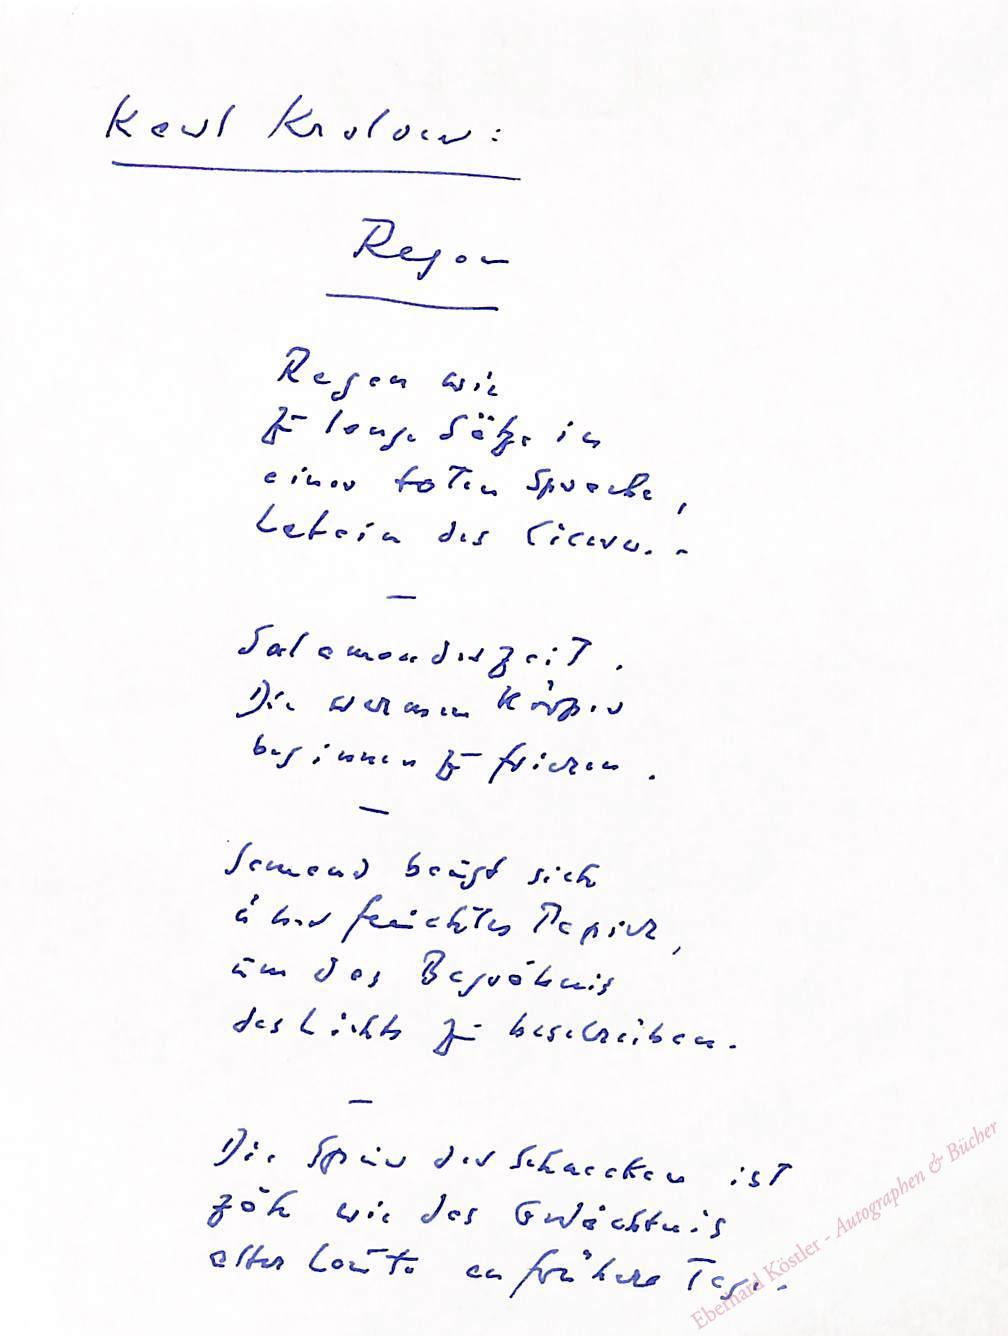 Karl Krolow:
Regen
Regen wie
zu lange Sätze in
einer toten Sprache,
Latein des Cicero. -
—
Salamanderzeit.
Die warmen Körper
beginnen zu frieren.
—
Jemand beugt sich
über feuchtes Papier,
um das Begräbnis
des Lichts zu beschreiben.
—
Die Spur der Schnecken ist
zäh wie das Gedächtnis
alter Leute an frühere Tage. -
Eberhard Köstler - Autographen & Bücher